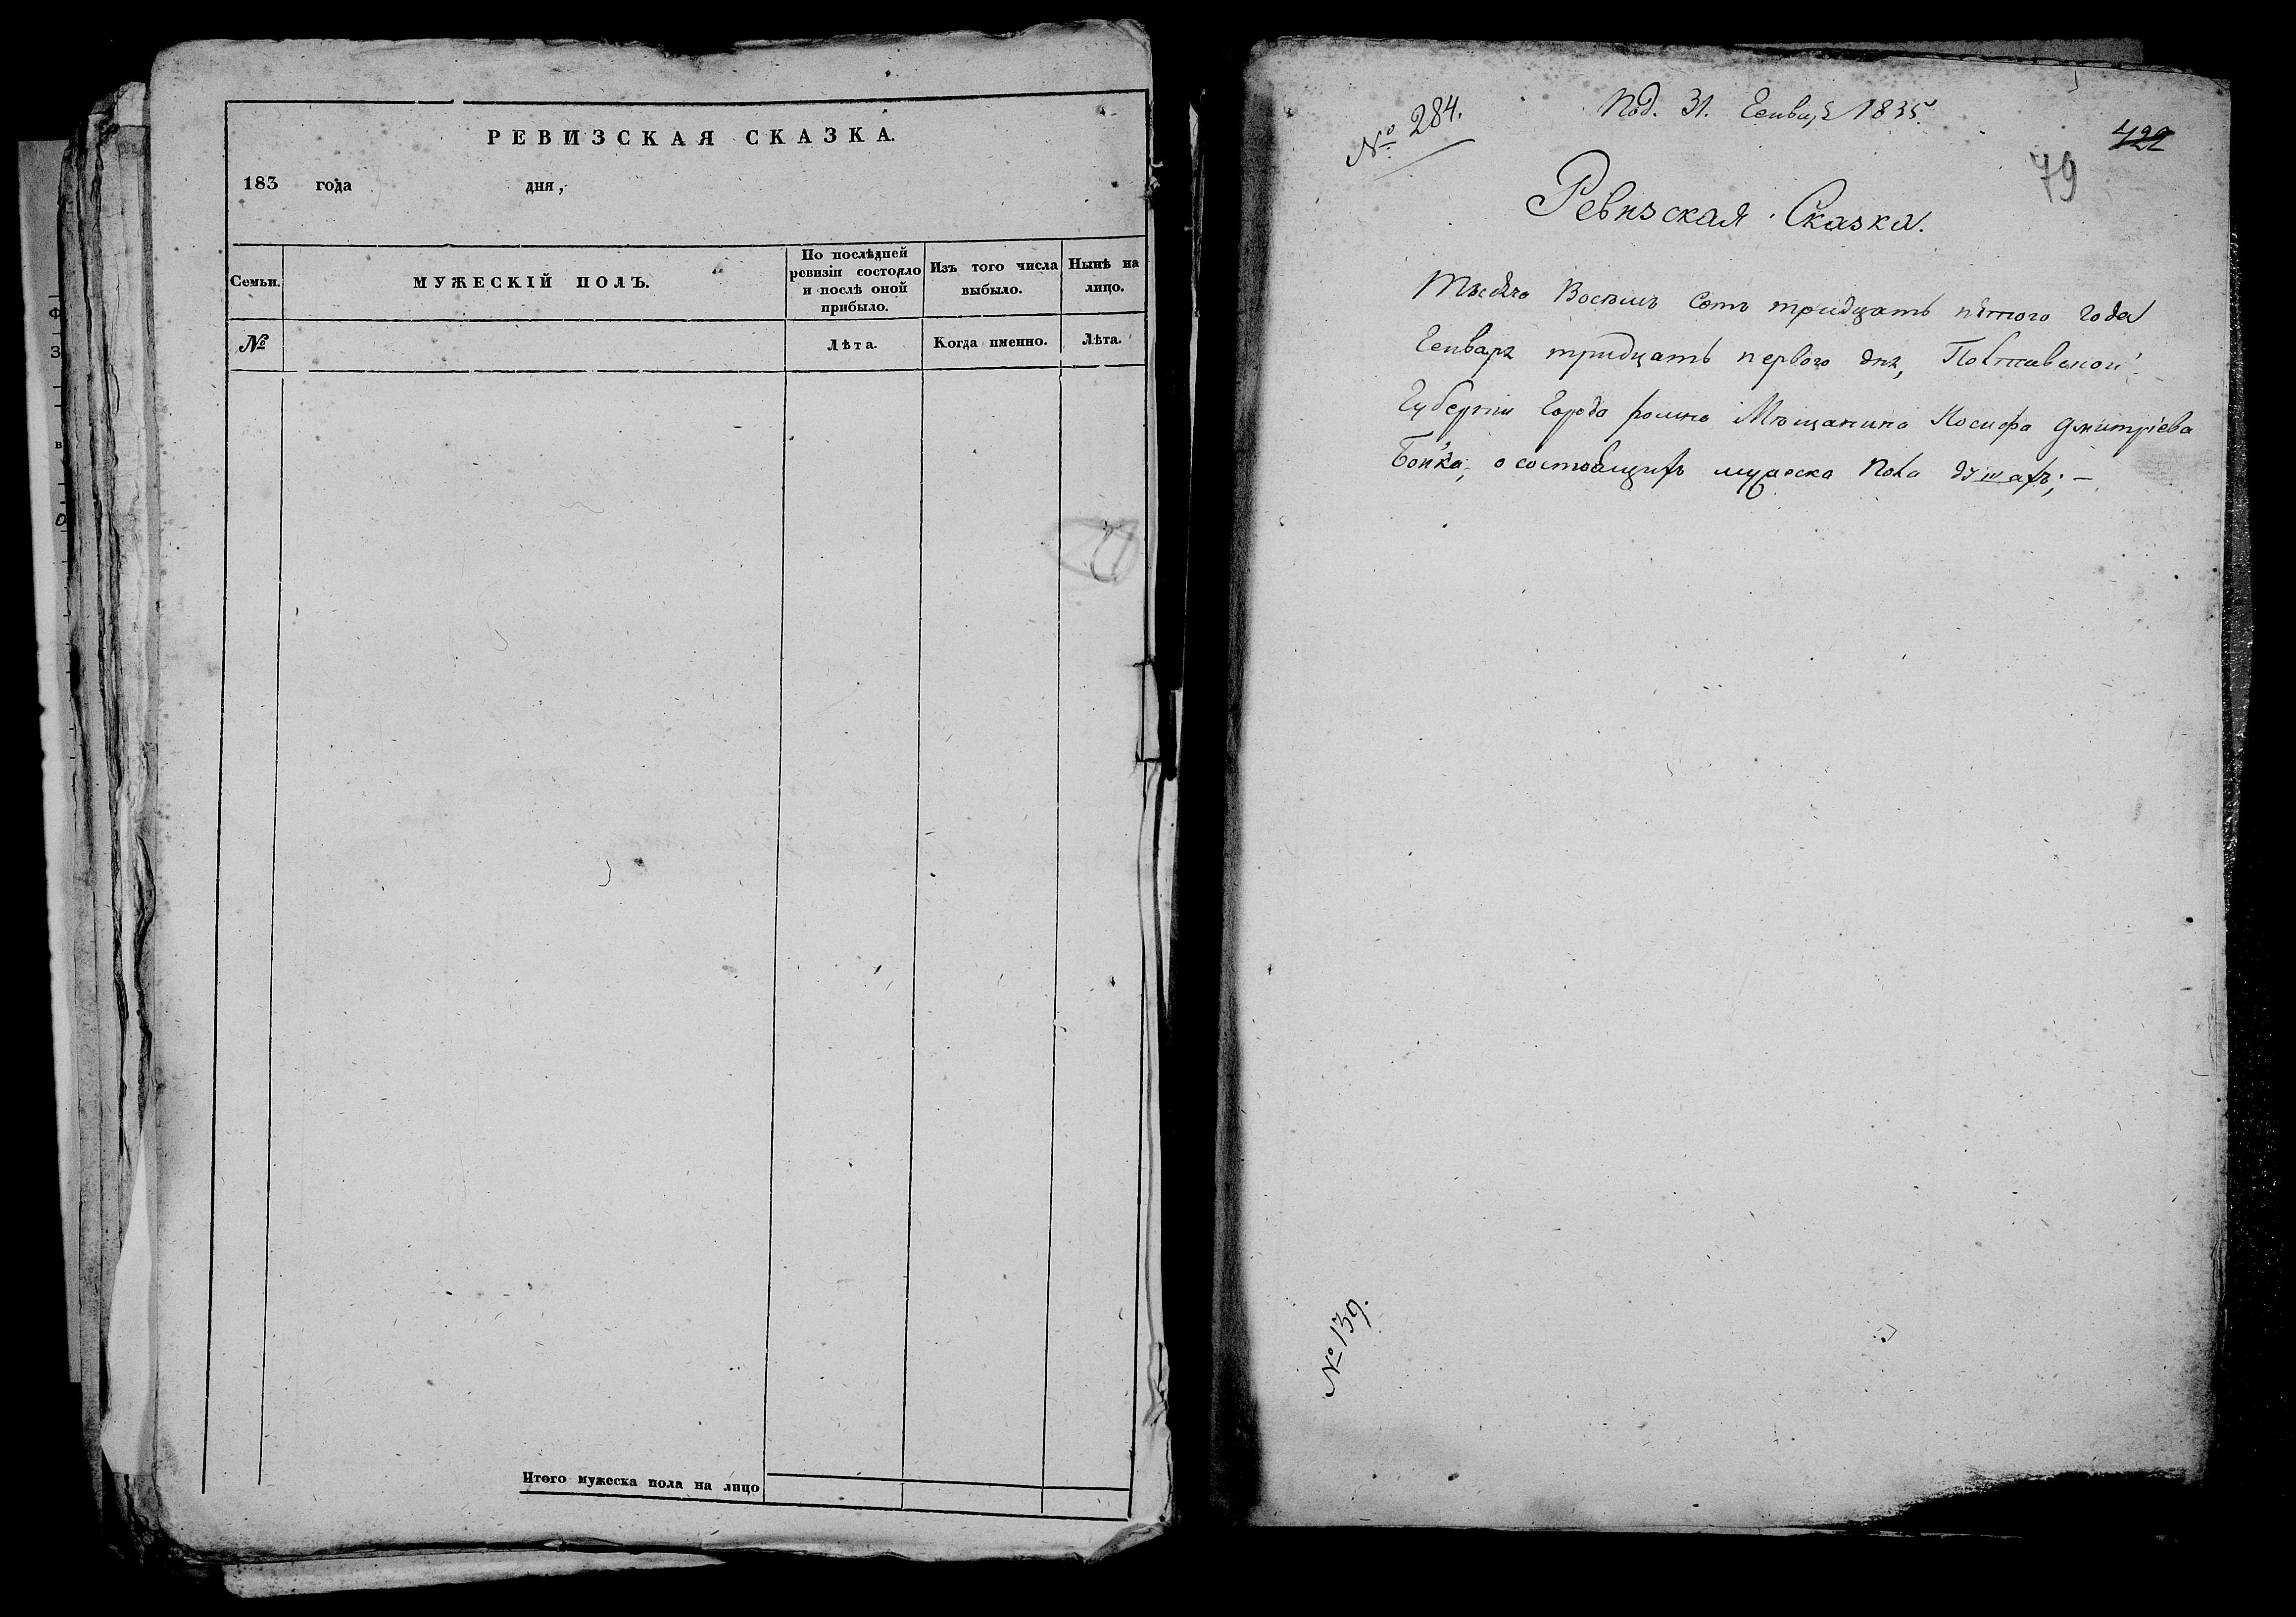 РЕВИЗСКАЯ СКАЗКА.
183 года дня,
Семьи.
МУЖЕСКІЙ ПОЛЪ.
По послѣдней
ревизіи состояло
и послѣ оной
прибыло.
Изъ того числа
выбыло.
Нынѣ на
лицо.
№
Лѣта.
Когда именно.
Лѣта.
Итого мужеска пола на лицо
№ 284.
Под. 31. Генвар 1835.
422
79
Ревизская Сказка.
Тысяча Восемь Сотъ тридцать пятого года
Генваря тридцать первого дня, Полтавской
Губерніи Города Ромна Мещанина Иосифа Дмитріева
Бойка, о состоящихъ мужеска пола душахъ; —
№ 139.